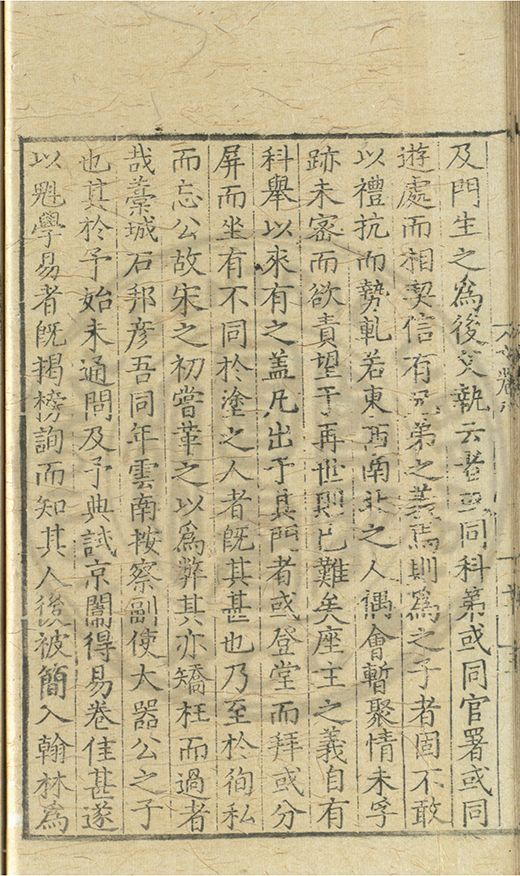 及門生之為後父執云者或同科第或同官署或同
遊處而相契信有兄弟之義焉則為之子者固不敢
以禮抗而勢軋若東西南北之人偶會暫聚情未孚
跡未密而欲責望于再世則已難矣座主之義自有
科舉以來有之盖凡出于其門者或登堂而拜或分
屏而坐有不同於塗之人者旣其甚也乃至於徇私
而忘公故宋之初嘗革之以為弊其亦矯枉而過者
哉藁城石邦彥吾同年雲南按察副使大器公之子
也其於予始未通問及予典試京闈得易卷佳甚遂
以魁學易者旣揭榜詢而知其人後被簡入翰林為